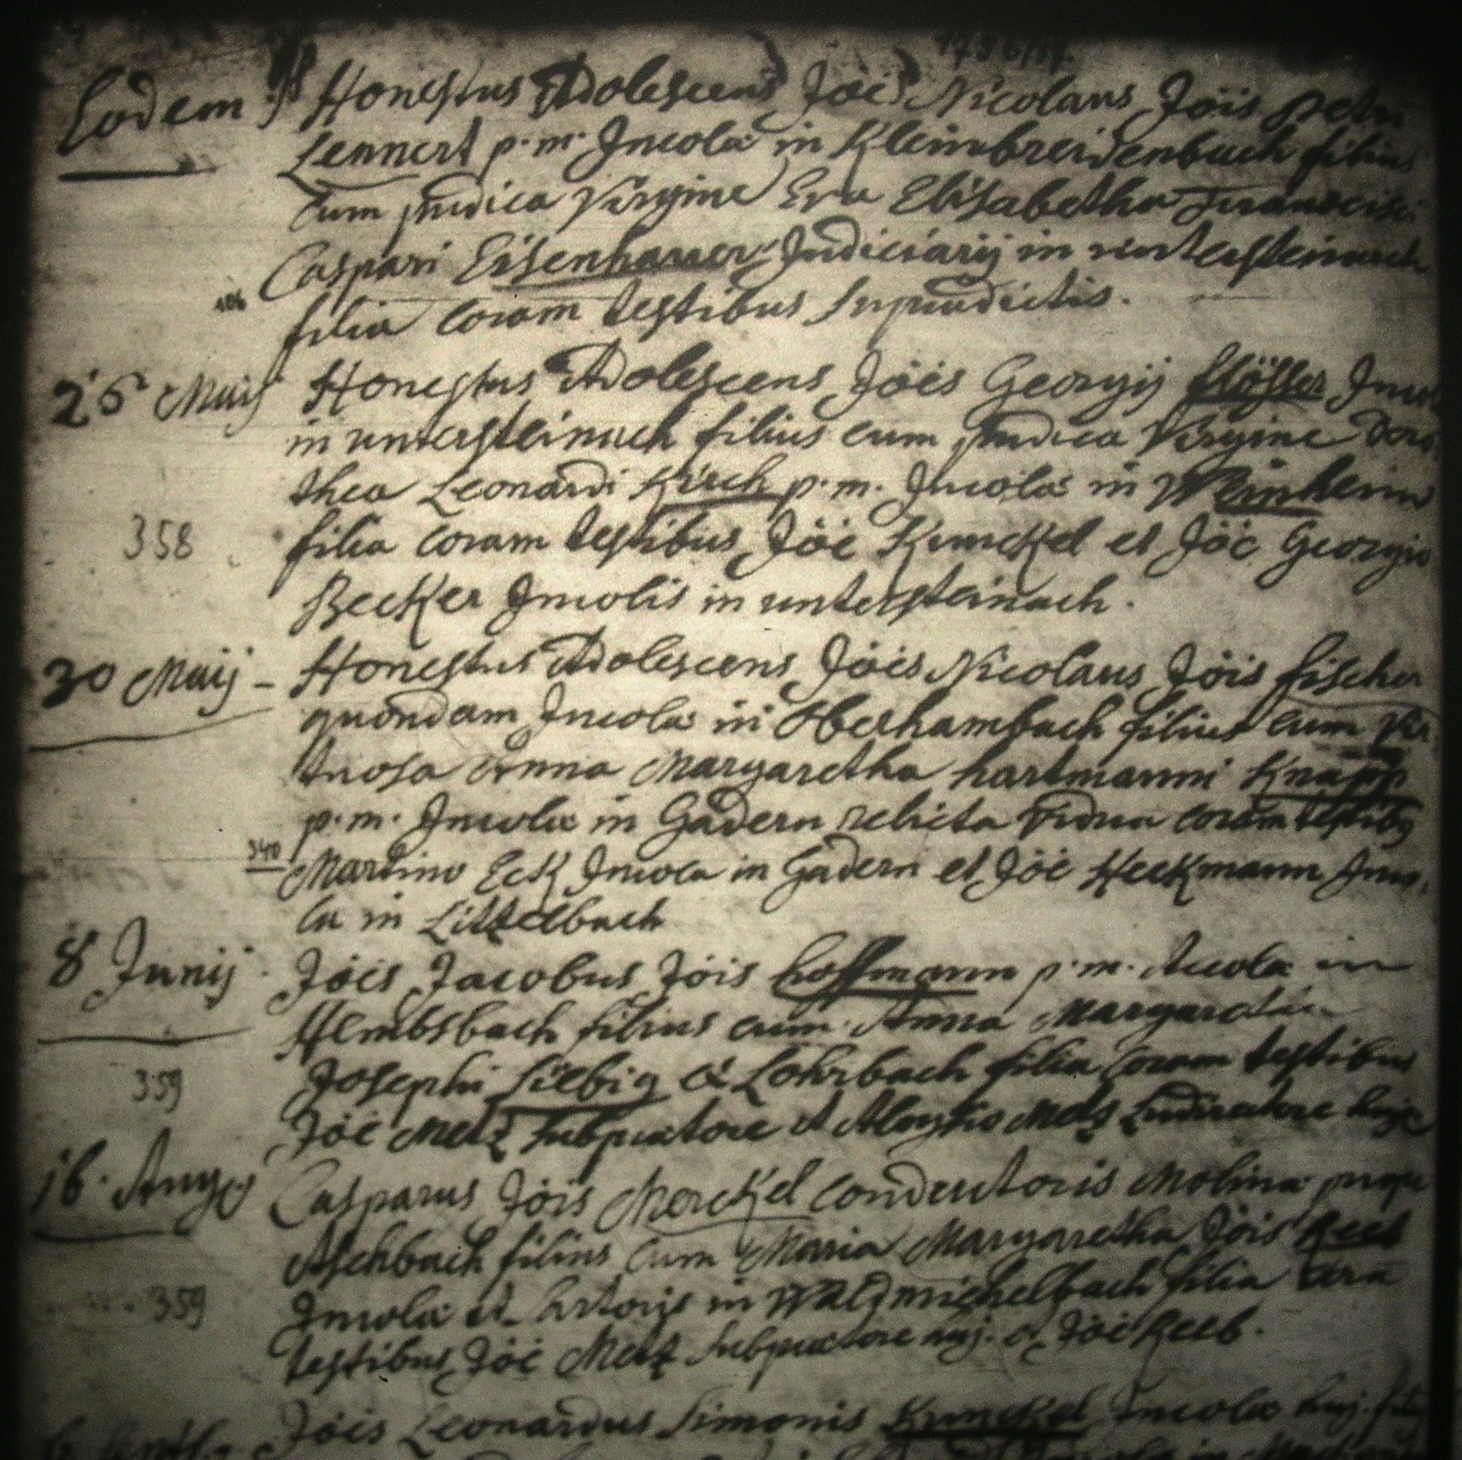 Eodem Honestus Adolescens Jöes Nicolaus Jöis Petri
Lennert p. m. Incolæ in Kleinbreidenbach filius
cum pudica Virgine Eva Elisabetha Francisci
Caspari Eisenhauer Judiciarij in untersteinach
filia coram testibus supradictis.
26 Maij Honestus Adolescens Jöes Georgij flösser Incol
in untersteinach filius cum pudica Virgine Doro
thea Leonardi Kirch p. m. Incolæ in Weinheim
358 filia coram testibus Jöe Kunckel et Jöe Georgio
Becker Incolis in untersteinach.
30 Maij Honestus Adolescens Jöes Nicolaus Jöis fischer
quondam Incolæ in Oberhambach filius cum Vir
tuosa Anna Margaretha hartmanni Knapp
p. m. Incolæ in Gadern relicta Vidua coram testibus
340 Martino Eck Incola in Gadern et Jöe Heckmann Inco
la in Litzelbach
8 Junij Jöes Jacobus Jöis hoffmann p. m. Incolæ in
Hembsbach filius cum Anna Margaretha
Josephi Liebig ex Lohrbach filia coram testibus
359
Jöe Metz subpraetore et Aloysio Metz Ludirectore huje
16. Aug Casparus Jöis Merckel conductoris Molinæ prope
Aschbach filius cum Maria Margaretha Jöis Reeb
359 Incolæ et Sartoris in Waldmichelbach filia coram
testibus Jöe Metz subpraetore huj. et Jöe Reeb.
Jöes Leonardus Simonis Kunckel Incolæ huj. fili